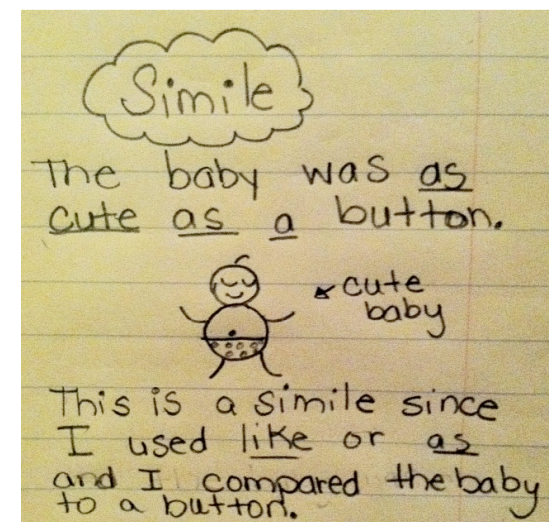 Simile
The baby was as
cute as a button.
cute
baby
This is a simile since
I used like or as
and I compared the baby
to a button.